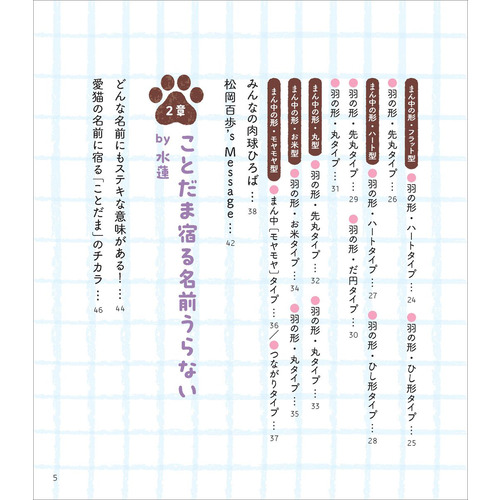 まん中の形・フラット型
●羽の形・ハートタイプ…24 ●羽の形・ひし形タイプ…25
●羽の形・先丸タイプ…26
まん中の形・ハート型
●羽の形・ハートタイプ…27 ●羽の形・ひし形タイプ…28
●羽の形・先丸タイプ…29 ●羽の形・だ円タイプ…30
●羽の形・丸タイプ…31
まん中の形・丸型
●羽の形・先丸タイプ…32 ●羽の形・丸タイプ…33
まん中の形・お米型
●羽の形・お米タイプ…34 ●羽の形・丸タイプ…35
まん中の形・モヤモヤ型
●まん中[モヤモヤ]タイプ…36／●つながりタイプ…37
みんなの肉球ひろば…38
松岡百歩's Message…42
2章
ことだま宿る名前うらない
by 水蓮
どんな名前にもステキな意味がある！…44
愛猫の名前に宿る「ことだま」のチカラ…46
5